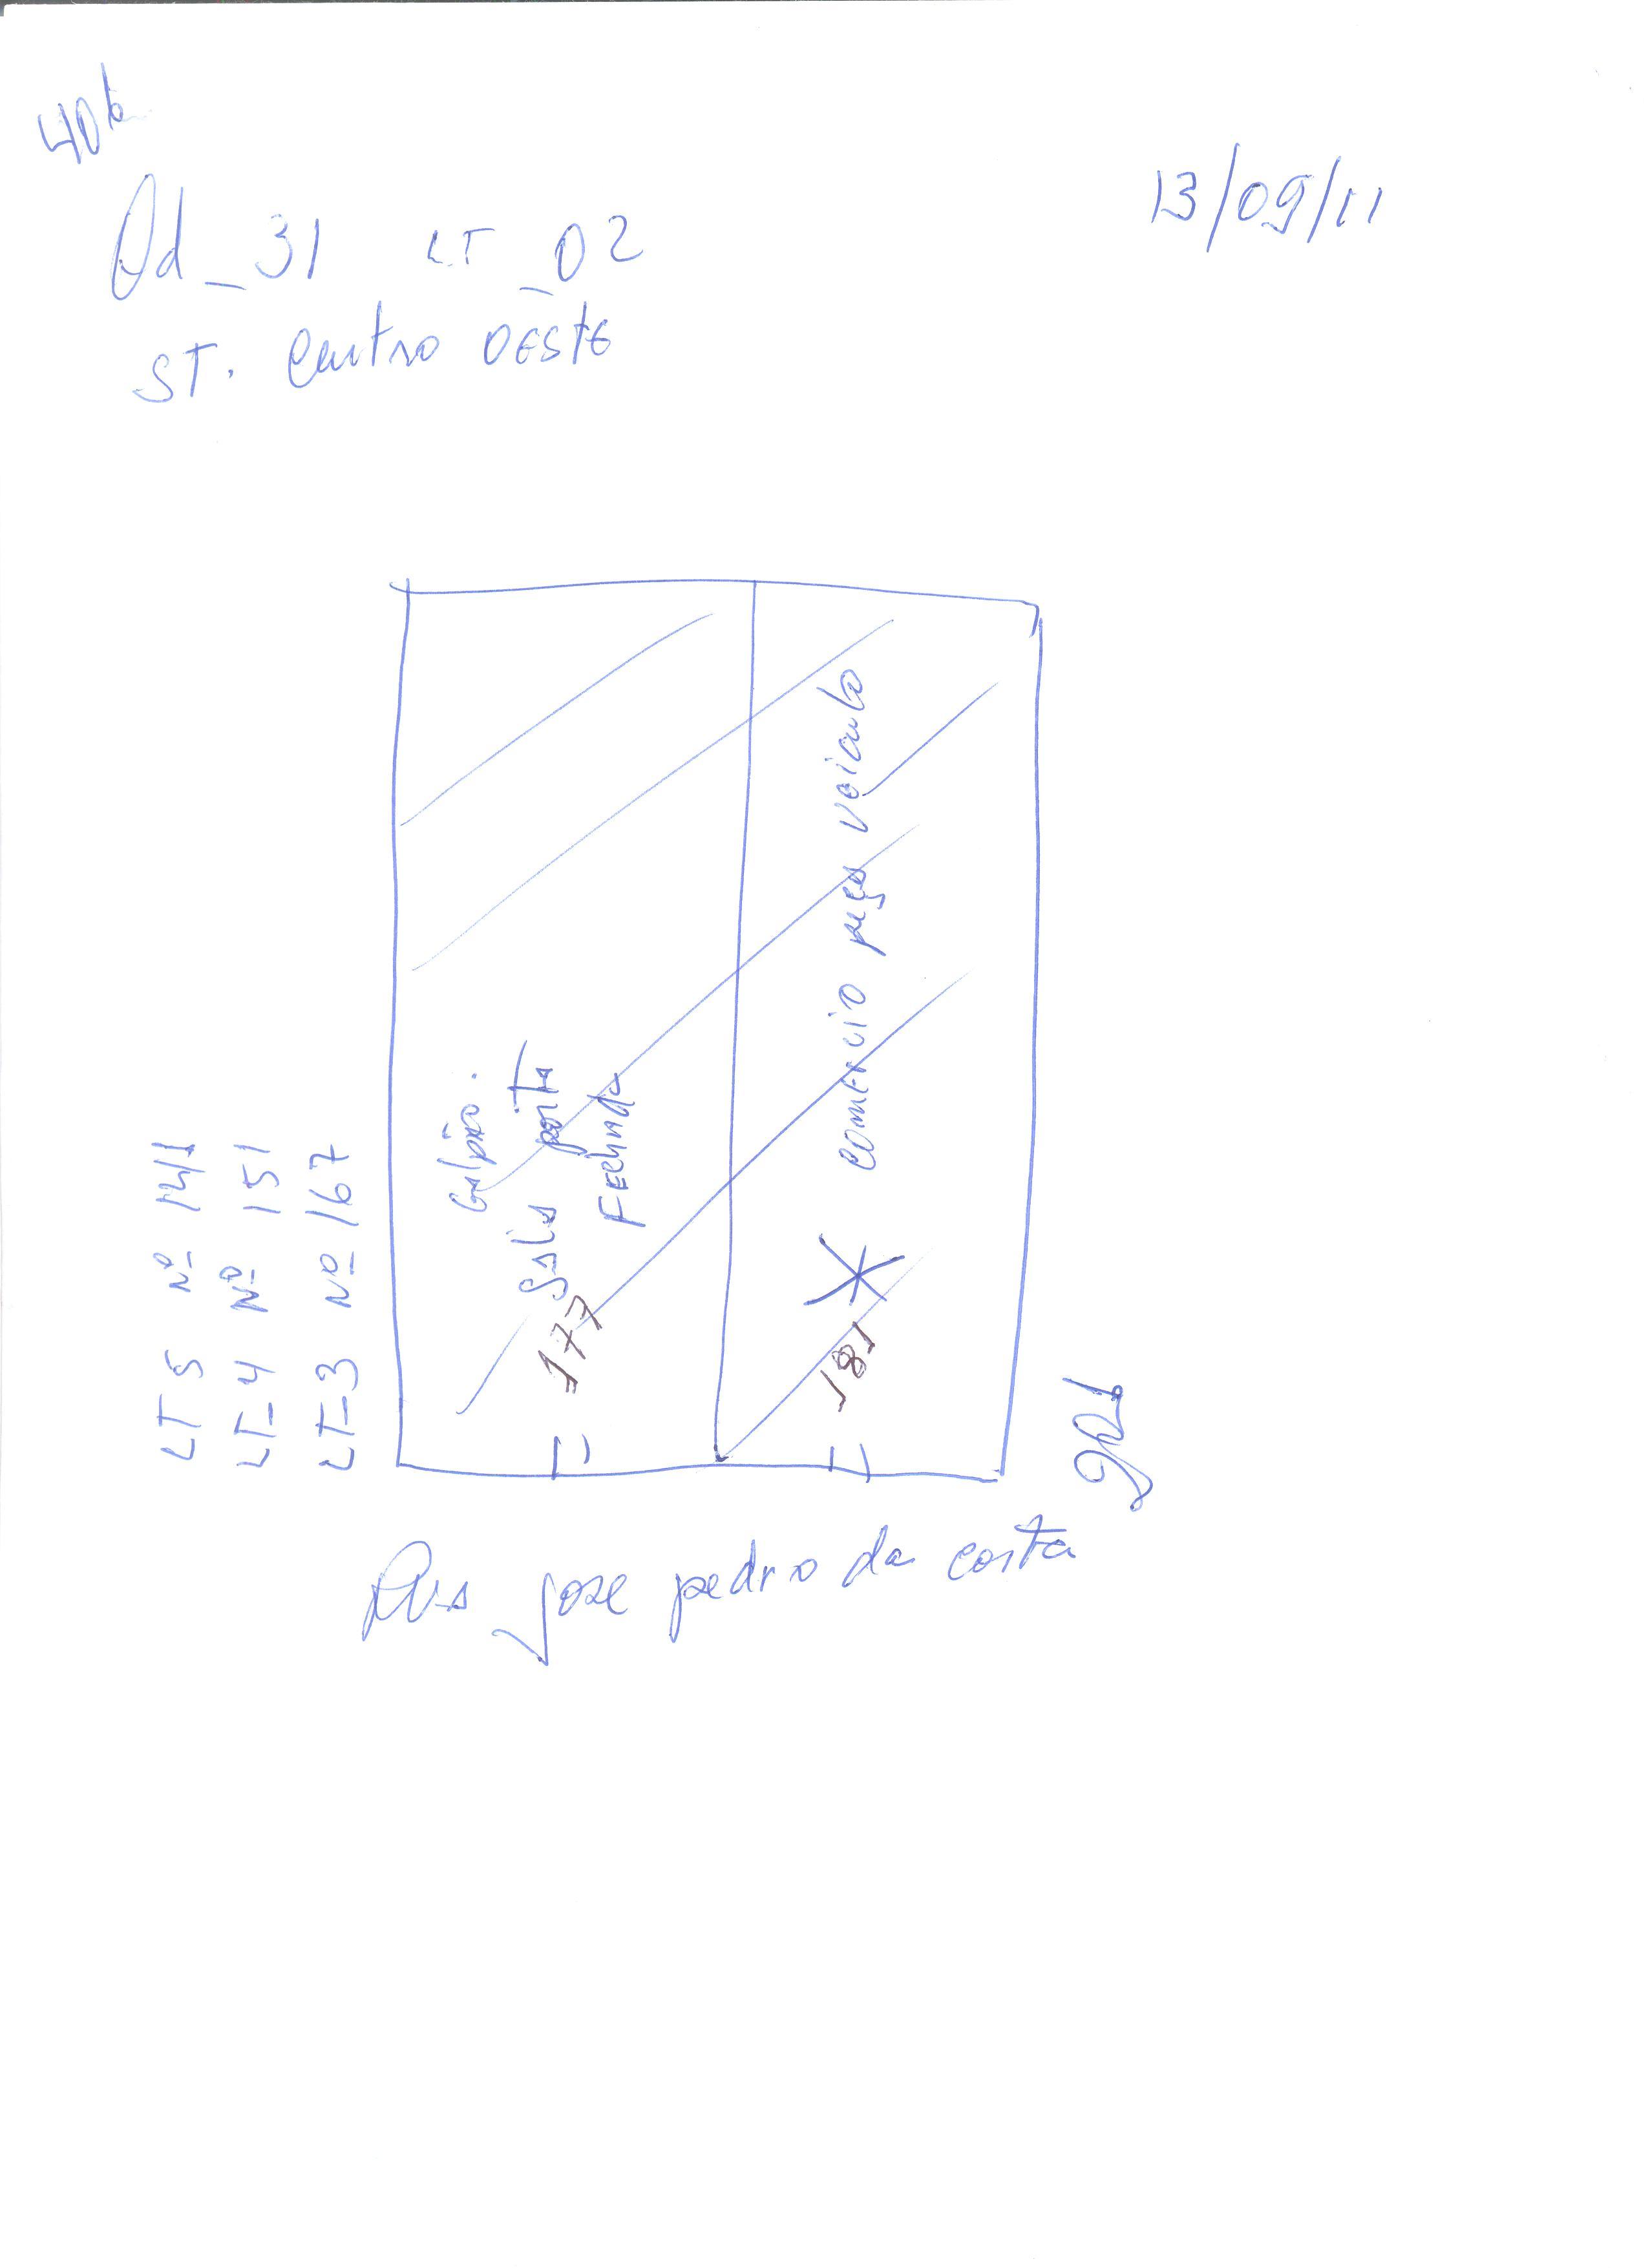 13/09/11
Qd_31 LT_02
ST. Centro OESTE
LT 5 Nº 141
LT_4 Nº 151
LT_3 Nº 167
Galpão.
177 Salas porta
Fechada
181 comercio peça veiculo
Rua jose pedro da costa